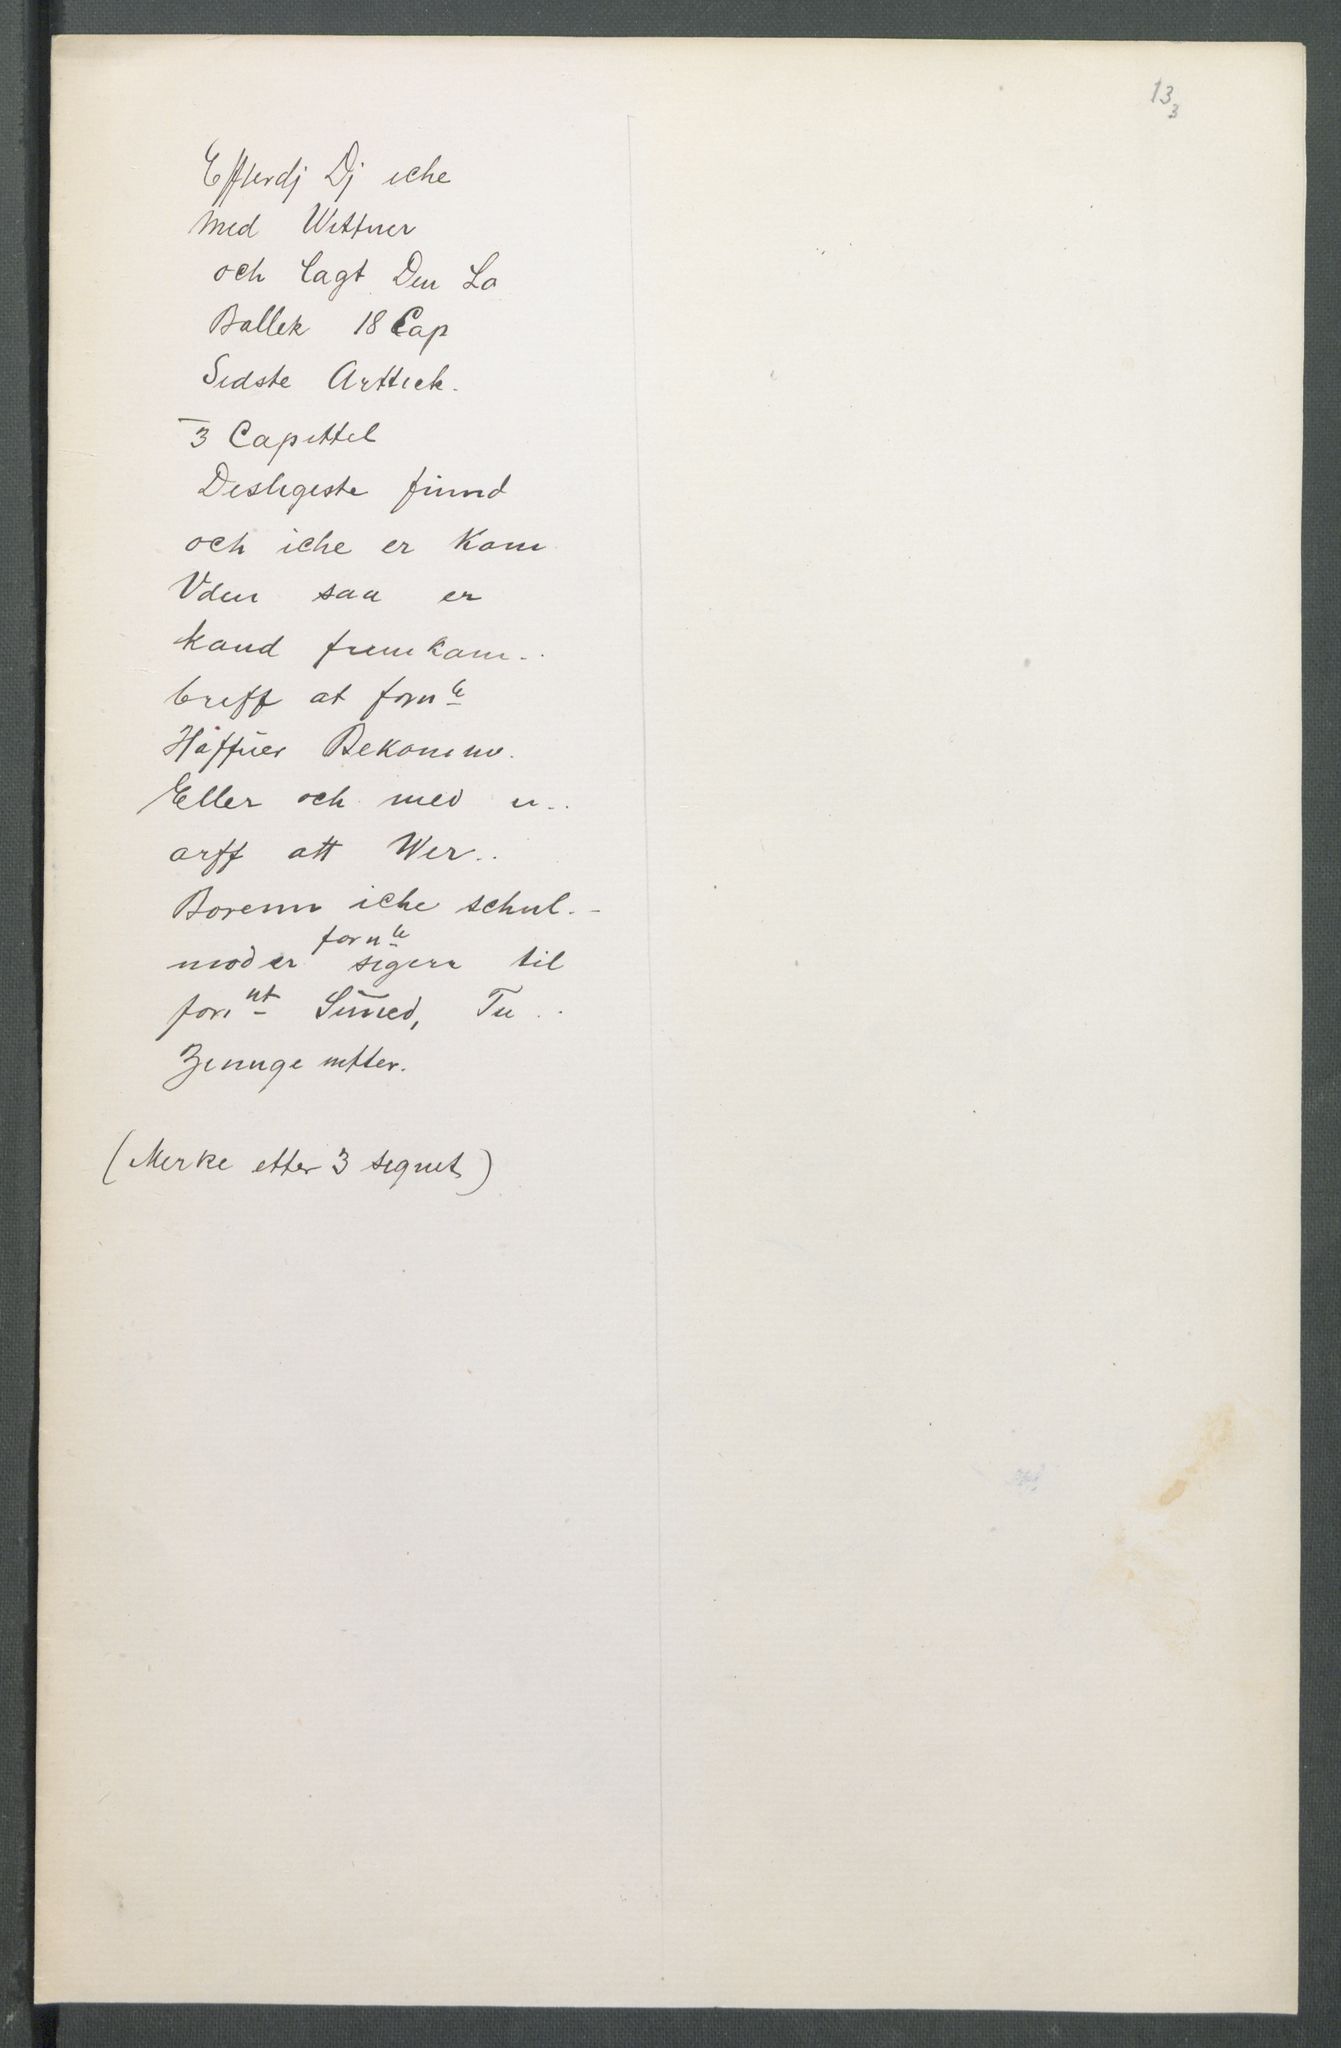 13
3
Effterdj Dj iche
med Wittner
och lagt Den Lo
Ballek 18 Cap
Sidste Arttick.
3 Capittel
Desligeste finnd
och iche er Kom
Vden saa er
kand fremkom..
breff at forn le
Haffuer Bekomme.
Eller och med u..
arff att Wer..
Borenn iche schul.-
moder fornle sigers til
forint Sinned, Tu..
Zinnge retter.
(Merke etter 3 signet)